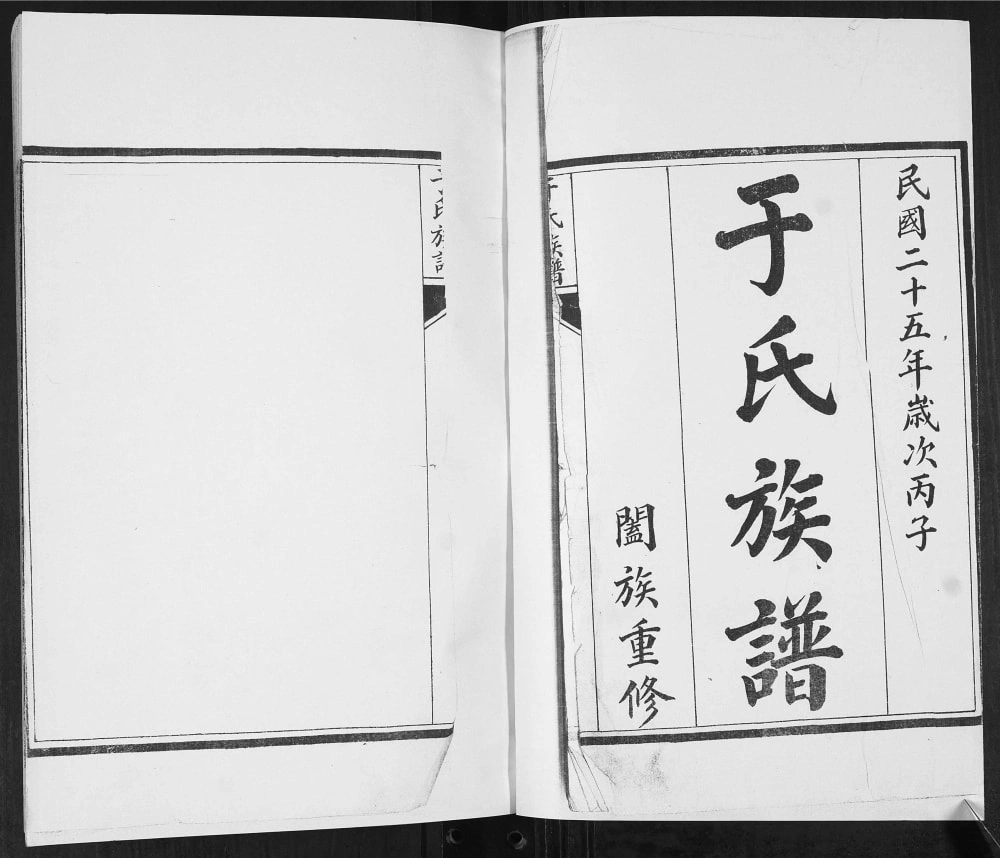 民國二十五年歲次丙子
于氏族譜
闔族重修
于氏族譜
于氏族譜